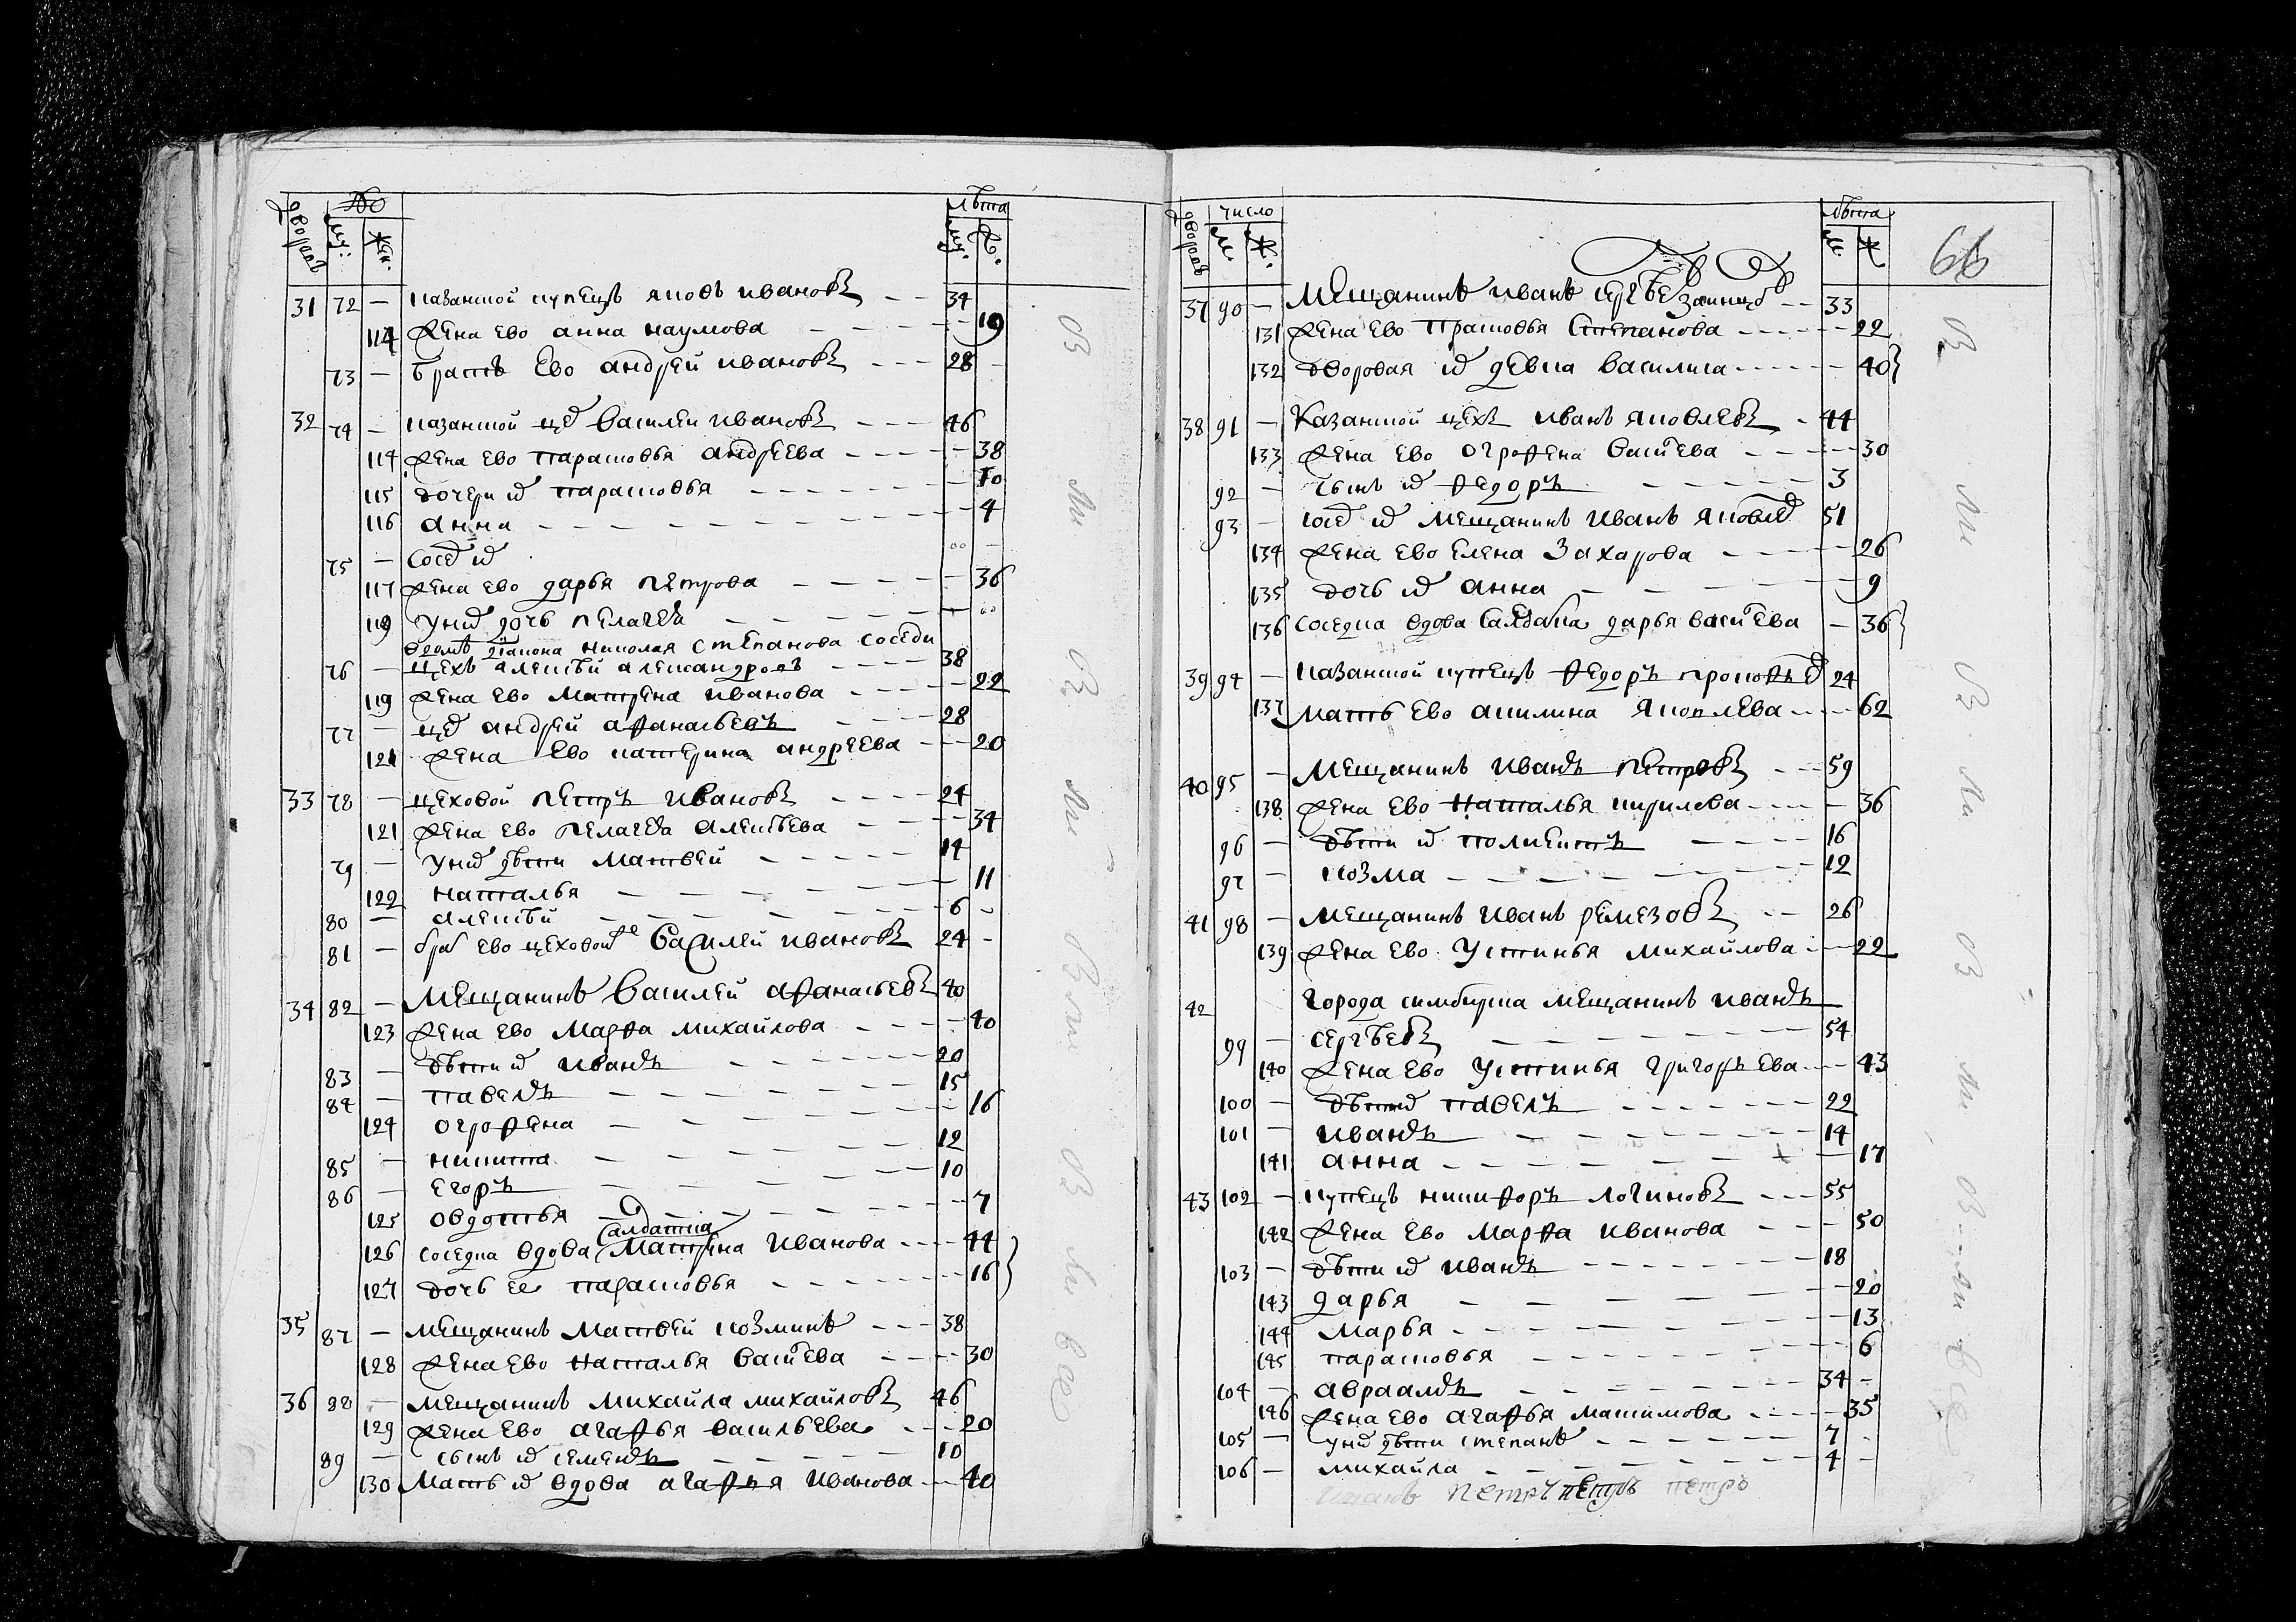 дворовъ № лѣта
му: жен. му. ж.
31 72 — казанской купецъ яковъ ивановъ 34
114 жена ево анна наумова 19
73 — братъ ево андрей ивановъ 28 -
32 74 — казанской цех василеи ивановъ 46
114 жена ево парасковья андреева 38
115 дочери их парасковья 10
116 анна 4
75 — сосед их
117 жена ево дарья петрова 36
119 у них дочь пелагея
николая степанова соседи
76 — цехъ алексѣй александровъ 38
119 жена ево матрена иванова 22
77 — цех андрей афанасьевъ 28
120 жена ево катерина андреева 20
33 78 — цеховой петръ ивановъ 24
121 жена ево пелагея алексѣева 34
79 — у них дѣти матвей 14
122 наталья 11
80 — алексѣй 6 -
81 — брат ево цеховой василей ивановъ 24 -
34 82 — мещанинъ василей афанасьевъ 40
123 жена ево марфа михайлова 40
83 — дѣти их иванъ 20
84 — павелъ 15
124 огрофена 16
85 — никита 12
86 — егоръ 10
125 овдотья 7
салдатка
126 соседка вдова матрена иванова 44
127 дочь ее парасковья 16
35 87 — мещанинъ матвей козминъ 38
128 жена ево наталья васильева 30
36 88 — мещанинъ михайла михайловъ 46
129 жена ево агафья васильева 20
89 — сынъ их семенъ 10
130 мать их вдова агафья иванова 40
дворовъ число лѣта
м. ж. м. ж 66
37 90 — мещанинъ иванъ 33
131 жена ево парасковья степанова 22
132 дворовая их девка василиса 40
38 91 — казанской цехъ иванъ яковлевъ 44
133 жена ево огрофена васильева 30
92 — сынъ их федоръ 3
93 — сосед их мещанинъ иванъ яковлев 51
134 жена ево елена захарова 26
135 дочь их анна 9
136 соседка вдова салдатка дарья васильева 36
39 94 — казанской купецъ федоръ прокофьев 24
137 мать ево акилина яковлева 62
40 95 — мещанинъ иванъ петровъ 59
138 жена ево наталья кирилова 36
96 — дѣти их поликистъ 16
97 — козма 12
41 98 — мещанинъ иванъ ремезовъ 26
139 жена ево устинья михайлова 22
42 города симбирска мещанинъ иванъ
99 — сергѣевъ 54
140 жена ево устинья григорьева 43
100 — дѣти их павелъ 22
101 — иванъ 14
141 анна 17
43 102 — купецъ никифоръ логиновъ 55
142 жена ево марфа иванова 50
103 — дѣти их иванъ 18
143 дарья 20
144 марья 13
145 парасковья 6
104 — авраамъ 34 -
146 жена ево агафья максимова 35
105 — у них дѣти степанъ 7 -
106 — михайла 4 -
петръ петръ петро